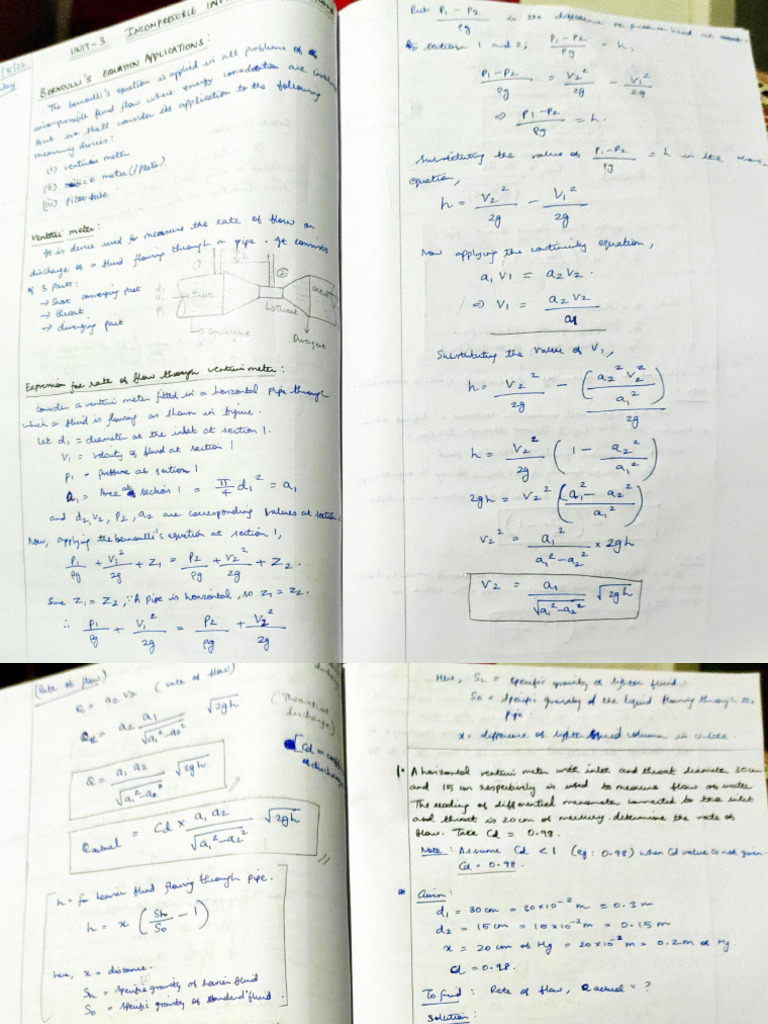 UNIT-3 INCOMPRESSIBLE
BERNOULLI'S EQUATION APPLICATIONS:
The bernoulli's equation is applied in all problems of
incompressible fluid flow where energy consideration are
But we shall consider its application to the following
measuring devices:
(i) venturi meter
(ii) orifice meter (/plate)
(iii) pitot-tube
Venturi meter:
It is device used to measure the rate of flow or
discharge of a fluid flowing through a pipe. It consists
of 3 parts:
→ Short converging part
→ throat
→ diverging part
②
d1
V1
P1
Inlet
→ Throat
→ Convergent
Divergent
Expression for rate of flow through venturi meter:
consider a venturi meter fitted in a horizontal pipe through
which a fluid is flowing as shown in figure.
Let d1 = diameter at the inlet at section 1.
V1 = velocity of fluid at section 1
P1 = pressure at section 1
a1 = Area at section 1 = π/4 d1² = a1
and d2, V2, P2, a2 are corresponding values at section
Now, applying the bernoulli's equation at section 1,
P1/ρg + V1²/2g + Z1 = P2/ρg + V2²/2g + Z2.
Since Z1 = Z2, ∵ A pipe is horizontal, so Z1 = Z2.
∴ P1/ρg + V1²/2g = P2/ρg + V2²/2g
But P1 - P2/ρg is the difference of pressure head at
section 1 and 2, P1-P2/ρg = h,
P1-P2/ρg = V2²/2g - V1²/2g
⇒ P1-P2/ρg = h.
Substituting the value of P1-P2/ρg = h in the above
equation,
h = V2²/2g - V1²/2g
Now applying the continuity equation,
a1 V1 = a2 V2.
⇒ V1 = a2 V2/a1
Substituting the value of V1,
h = V2²/2g - (a2² V2²/a1²)/2g
h = V2²/2g (1 - a2²/a1²)
2gh = V2² (a1² - a2²/a1²)
V2² = a1²/a1²-a2² × 2gh
V2 = a1/√a1²-a2² √2gh
(Rate of flow)
Q = a2 V2 (rate of flow)
Q = a2 a1/√a1²-a2² √2gh (Theoretical discharge)
Q = a1 a2/√a1²-a2² √2gh
[Cd = coeff of discharge
Qactual = Cd × a1 a2/√a1²-a2² √2gh
h = for heavier fluid flowing through pipe.
h = x (Sh/So - 1)
here, x = distance.
Sh = specific gravity of heavier fluid
So = specific gravity of standard fluid.
Here, SL = specific gravity of lighter fluid
So = specific gravity of the liquid flowing through the
pipe.
x = difference of lighter liquid column in U-tube
1. A horizontal venturi meter with inlet and throat diameter 30cm
and 15 cm respectively is used to measure flow of water
The reading of differential manometer connected to the inlet
and throat is 20cm of mercury. determine the rate of
flow. Take Cd = 0.98.
Note: Assume Cd < 1 (eg: 0.98) when Cd value is not given.
Cd = 0.98.
Given:
d1 = 30cm = 30×10⁻² m = 0.3m
d2 = 15cm = 15×10⁻² m = 0.15m
x = 20 cm of Hg = 20×10⁻² m = 0.2m of Hg.
Cd = 0.98.
To find: Rate of flow, Qactual = ?
Solution: